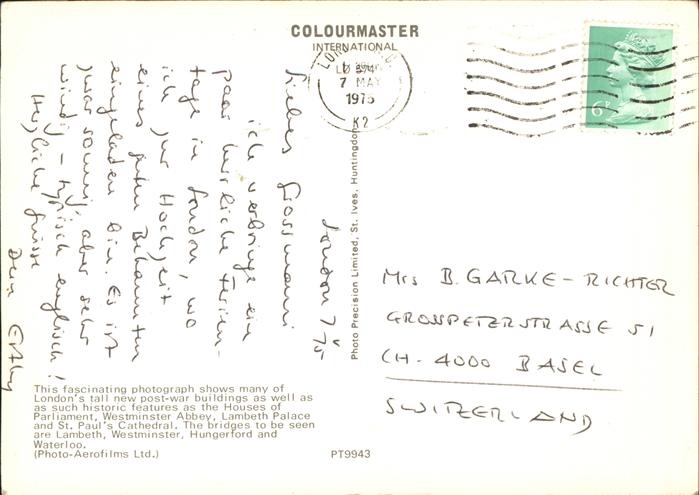 COLOURMASTER
INTERNATIONAL
7 MAY
1975
K2
6P
London 7 V 75
Liebes Grossmami
ich verbringe ein
paar herrliche Ferien-
tage in London, wo
ich zur Hochzeit
eines guten Bekannten
eingeladen bin. Es ist
zwar sonnig, aber sehr
windig – typisch englisch!
Herzliche Grüsse
Dein
Mrs B. GARKE-RICHTER
GROSSPETERSTRASSE 51
CH-4000 BASEL
SWITZERLAND
Photo Precision Limited, St. Ives, Huntingdon
This fascinating photograph shows many of
London's tall new post-war buildings as well as
as such historic features as the Houses of
Parliament, Westminster Abbey, Lambeth Palace
and St. Paul's Cathedral. The bridges to be seen
are Lambeth, Westminster, Hungerford and
Waterloo.
(Photo-Aerofilms Ltd.)
PT9943